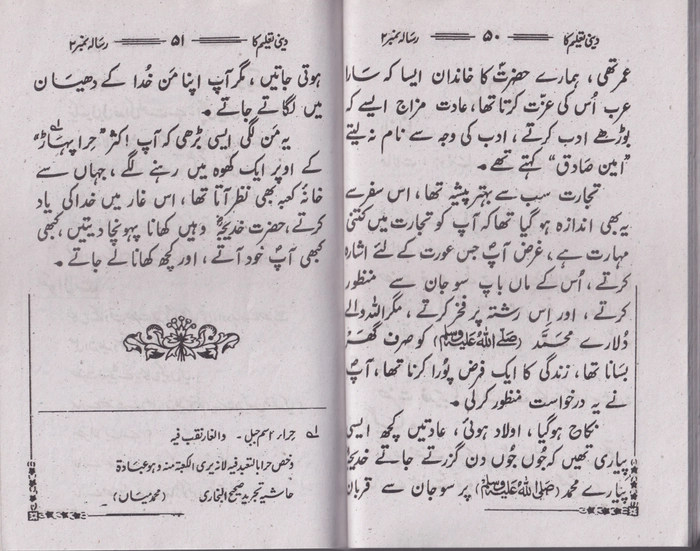 دینی تعلیم کا ۵۰ رسالہ نمبر ۲
عمر تھی، ہمارے حضرتؐ کا خاندان ایسا کہ سارا
عرب اُس کی عزّت کرتا تھا، عادت مزاج ایسے کہ
بوڑھے ادب کرتے، ادب کی وجہ سے نام نہ لیتے
”امین صادق“ کہتے تھے۔
تجارت سب سے بہتر پیشہ تھا، اس سفر سے
یہ بھی اندازہ ہو گیا تھا کہ آپ کو تجارت میں کتنی
مہارت ہے، غرض آپؐ جس عورت کے لئے اشارہ
کرتے، اُس کے ماں باپ سو جان سے منظور
کرتے، اور اِس رشتہ پر فخر کرتے، مگر اللہ والے
دُلارے محمّد (صلی اللہ علیہ وسلم) کو صرف گھر
بسانا تھا، زندگی کا ایک فرض پُورا کرنا تھا، آپؐ
نے یہ درخواست منظور کر لی۔
نکاح ہو گیا، اولاد ہوئی، عادتیں کچھ ایسی
پیاری تھیں کہ جُوں جُوں دن گزرتے جاتے خدیجہؓ
پیارے محمد (صلی اللہ علیہ وسلم) پر سو جان سے قربان
دینی تعلیم کا ۵۱ رسالہ نمبر ۲
ہوتی جاتیں، مگر آپ اپنا مَن خُدا کے دھیان
میں لگاتے جاتے۔
یہ مَن لگی ایسی بڑھی کہ آپ اکثر ”حِرا پہاڑ“ لہ
کے اوپر ایک کھوہ میں رہنے لگے، جہاں سے
خانۂ کعبہ بھی نظر آتا تھا، اس غار میں خدا کی یاد
کرتے، حضرت خدیجہؓ وہیں کھانا پہونچا دیتیں، کبھی
کبھی آپؐ خود آتے، اور کچھ کھانا لے جاتے۔
لہ حرار اسم جبل۔ والغار نقب فیہ
وخص حرا بالتعبد فیہ لانہ یری الکعبۃ منہ وہو عبادۃ
حاشیہ تجرید صحیح البخاری (محمد میاں)